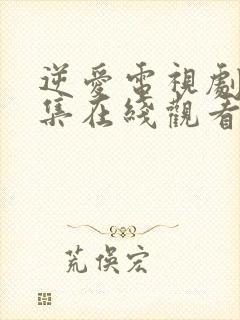 逆愛電視劇
集在綫觀看
荒俁宏